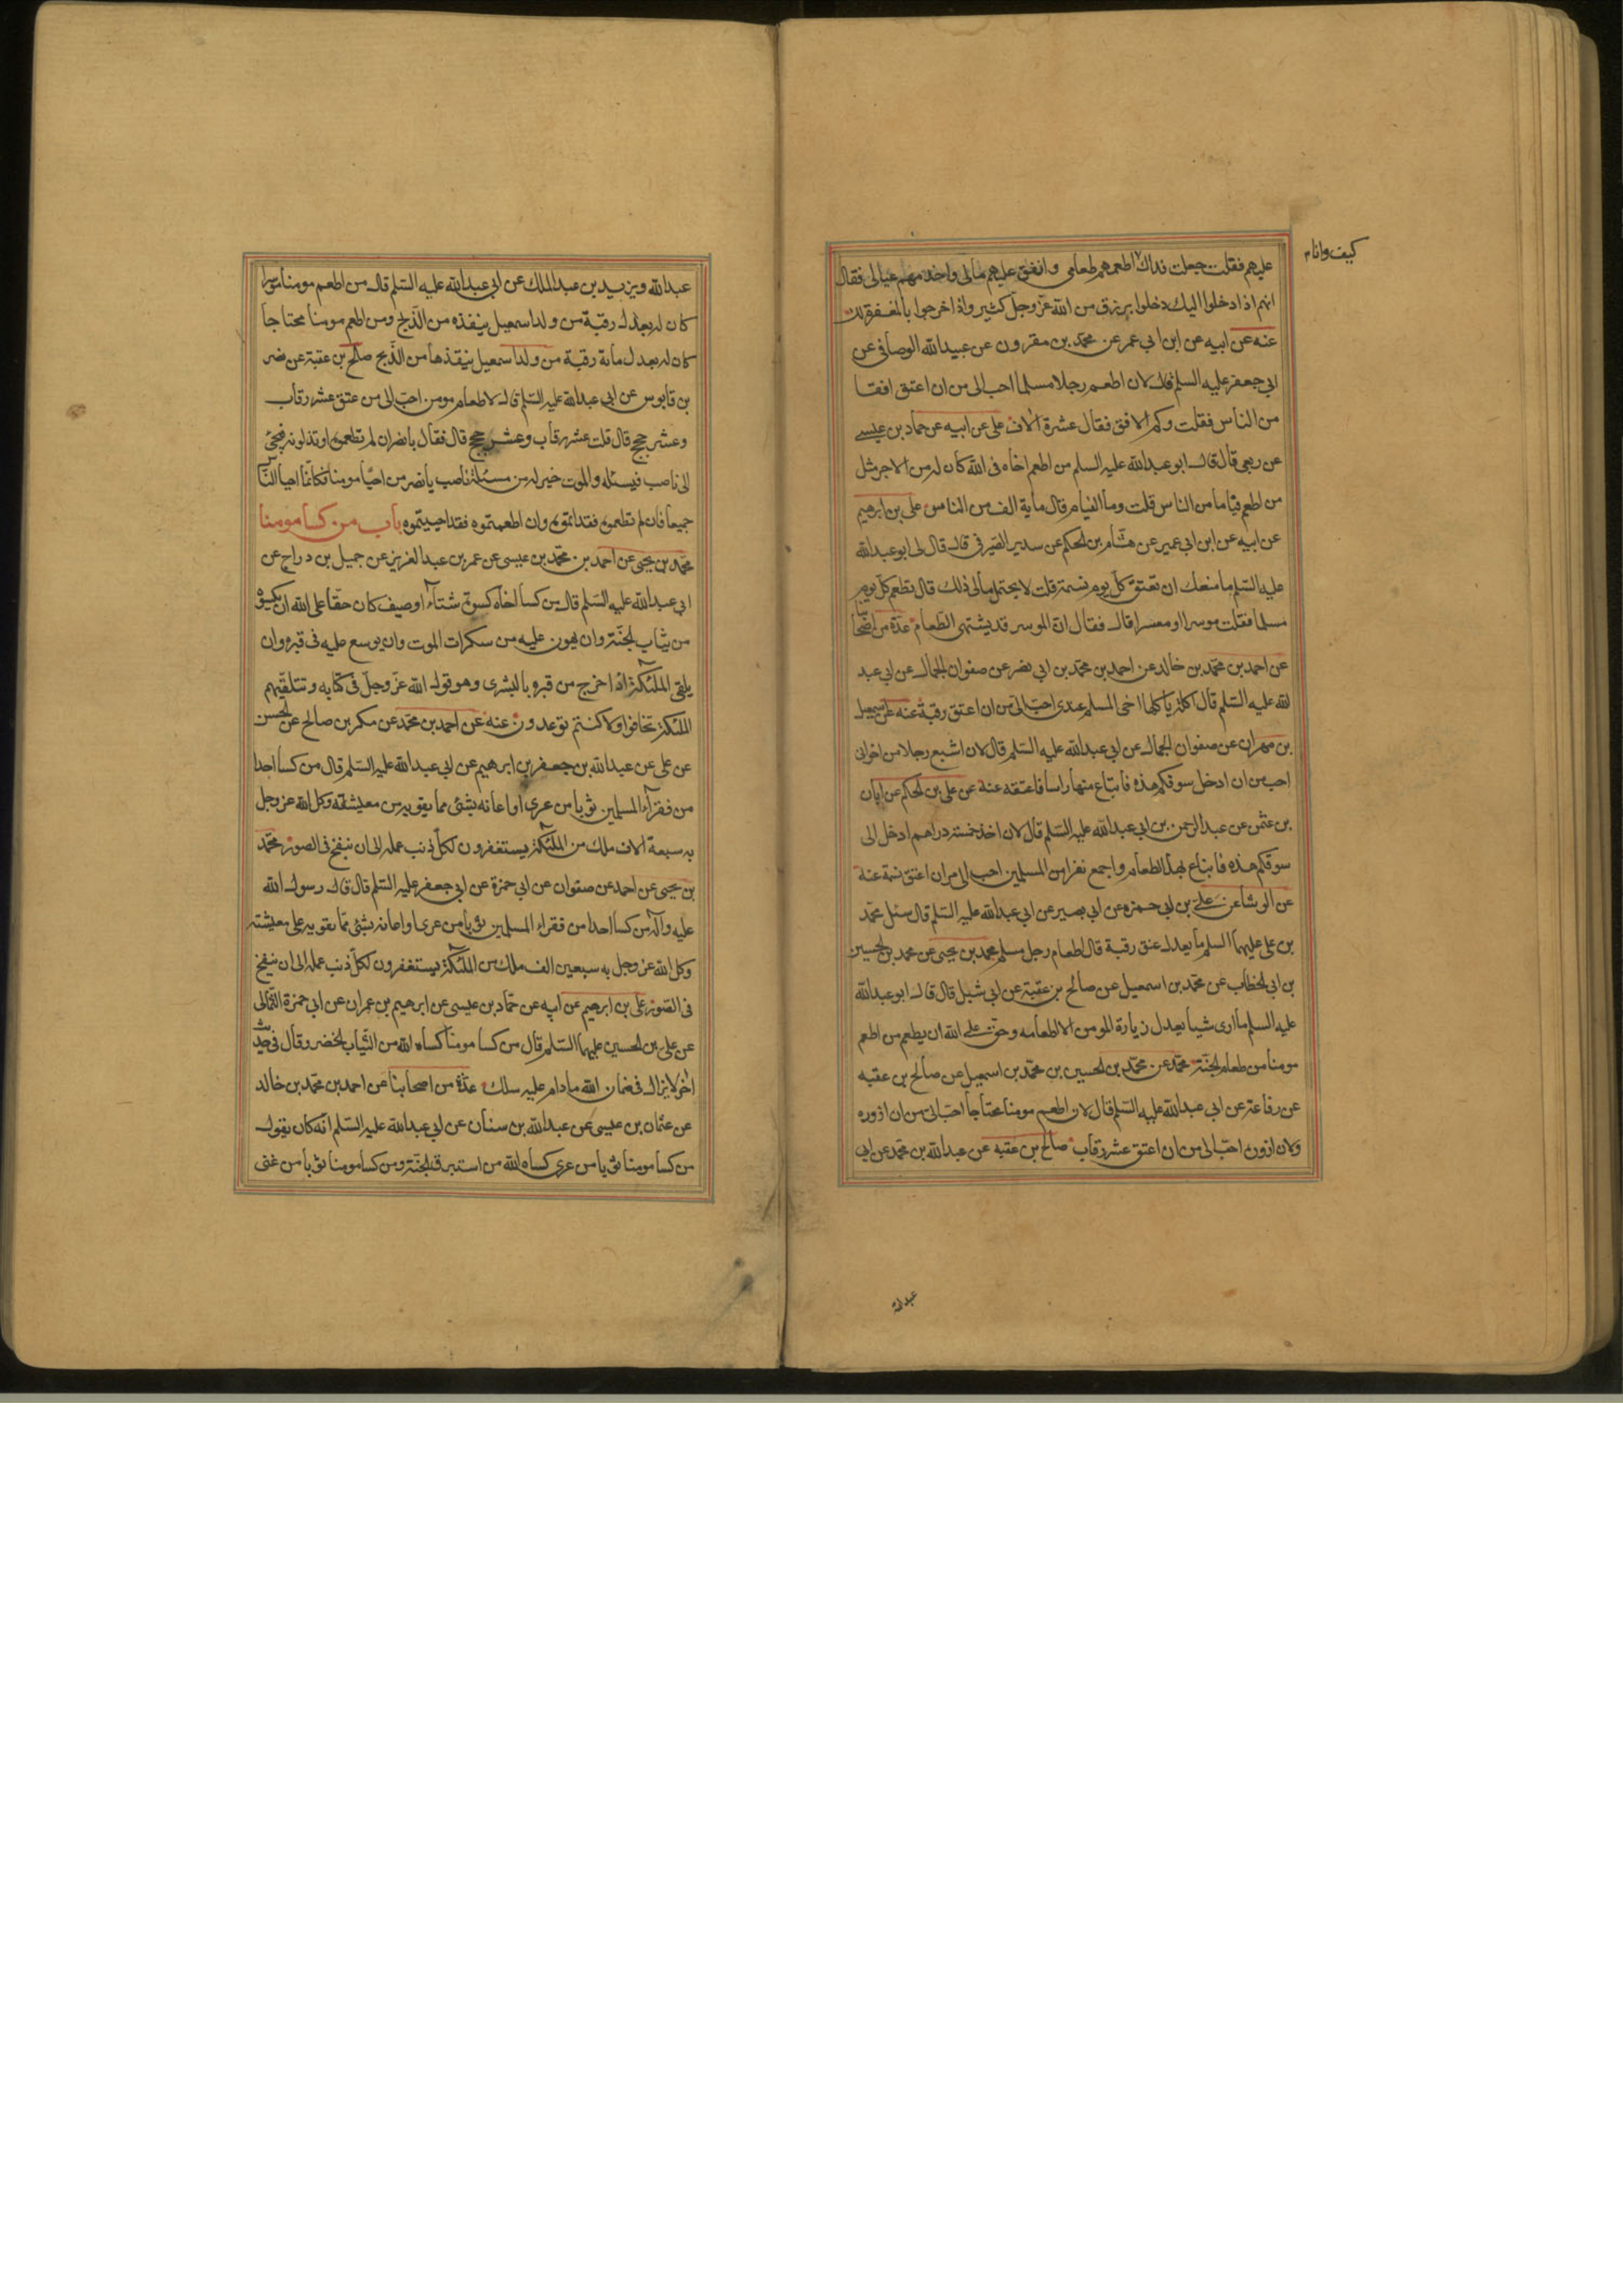 كيف وانا م
عليهم فقلت جعلت فداك اطعمهم طعامي وانفق عليهم مالي واخدمهم عيالي فقال
انهم اذا دخلوا اليك دخلوا برزق من الله عز وجل كثير واذا خرجوا بالمغفرة لك
عنه عن ابيه عن ابن ابي عمر عن محمد بن مقرون عن عبيد الله الوصافي عن
ابي جعفر عليه السلم قال لان اطعم رجلا مسلما احب الى من ان اعتق افقا
من الناس فقلت وكم الافق فقال عشرة الاف على عن ابيه عن حماد بن عيسى
عن ربعى قال قال ابو عبد الله عليه السلم من اطعم اخاه فى الله كان له من الاجر مثل
من اطعم فياما من الناس قلت وما الفيام قال ماية الف من الناس على بن ابرهيم
عن ابيه عن ابن ابي عمير عن هشام بن الحكم عن سدير الصيرفى قال قال لى ابو عبد الله
عليه السلم ما منعك ان تعتق كل يوم نسمة قلت لا يحتمل مالى ذلك قال تطعم كل يوم
مسلما فقلت موسرا او معسرا قال فقال ان الموسر قد يشتهى الطعام عدة من اصحابنا
عن احمد بن محمد بن خالد عن احمد بن محمد بن ابي نصر عن صفوان الجمال عن ابي عبد
لله عليه السلم قال اكلة ياكلها اخى المسلم عندى احب الى من ان اعتق رقبة عنه عن اسمعيل
بن مهران عن صفوان الجمال عن ابي عبد الله عليه السلم قال لان اشبع رجلا من اخوانى
احب من ان ادخل سوقكم هذه فابتاع منها راسا فاعتقه عنه عن على بن الحكم عن ابان
بن عثمن عن عبد الرحمن بن ابي عبد الله عليه السلم قال لان اخذ خمسة دراهم ادخل الى
سوقكم هذه فابتاع بها الطعام واجمع نفرا من المسلمين احب الى من ان اعتق نسمة عنه
عن الوشا عن على بن ابي حمزه عن ابي بصير عن ابي عبد الله عليه السلم قال سئل محمد
بن على عليهما السلم ما يعدل عتق رقبة قال اطعام رجل مسلم محمد بن يحيى عن محمد بن الحسين
بن ابي الخطاب عن محمد بن اسمعيل عن صالح بن عقبة عن ابي شبل قال قال ابو عبد الله
عليه السلم ما ارى شيا يعدل زيارة المومن الا اطعامه وحق على الله ان يطعم من اطعم
مومنا من طعام الجنة محمد عن محمد بن الحسين بن محمد بن اسمعيل عن صالح بن عقبه
عن رفاعة عن ابي عبد الله عليه السلم قال لان اطعم مومنا محتاجا احب الى من ان ازوره
ولان ازوره احب الى من ان اعتق عشر رقاب صالح بن عقبه عن عبد الله بن محمد عن ابي
عبد الله
عبد الله ويزيد بن عبد الملك عن ابي عبد الله عليه السلم قال من اطعم مومنا موسرا
كان له بعدل رقبة من ولد اسمعيل ينقذه من الذبح ومن اطعم مومنا محتاجا
كان له بعدل ماية رقبة من ولد اسمعيل ينقذها من الذبح صالح بن عقبة عن نضر
بن قابوس عن ابي عبد الله عليه السلم قال لاطعام مومن احب الى من عتق عشر رقاب
وعشر حجج قال قلت عشر رقاب وعشر حجج قال فقال يا نضر ان لم تطعموه او تذلونه فيجئ
الى ناصب فيسئله والموت خير له من مسئلة ناصب يا نضر من احيا مومنا فكانما احيا الناس
جميعا فان لم تطعموه فقد امتموه وان اطعمتموه فقد احييتموه باب من كسا مومنا
محمد بن يحيى عن احمد بن محمد بن عيسى عن عمر بن عبد العزيز عن جميل بن دراج عن
ابي عبد الله عليه السلم قال من كسا اخاه كسوة شتاء او صيف كان حقا على الله ان يكسوه
من ثياب الجنة وان يهون عليه من سكرات الموت وان يوسع عليه فى قبره وان
يلقى الملئكة اذا خرج من قبره بالبشرى وهو قول الله عز وجل فى كتابه وتتلقيهم
الملئكة تخافوا ولا كنتم توعدون عنه عن احمد بن محمد عن مكمر بن صالح عن الحسن
عن على عن عبد الله بن جعفر بن ابرهيم عن ابي عبد الله عليه السلم قال من كسا احدا
من فقراء المسلمين ثوبا من عرى او اعانه بشئ مما يقويه من معيشته وكل الله عز وجل
به سبعة الاف ملك من الملئكة يستغفرون لكل ذنب عمله الى ان ينفخ فى الصور محمد
بن يحيى عن احمد عن صفوان عن ابي حمزة عن ابي جعفر عليه السلم قال قال رسول الله
عليه وآله من كسا احدا من فقراء المسلمين ثوبا من عرى او اعانه بشئ مما يقويه على معيشته
وكل الله عز وجل به سبعين الف ملك من الملئكة يستغفرون لكل ذنب عمله الى ان ينفخ
فى الصور على بن ابرهيم عن ابيه عن حماد بن عيسى عن ابرهيم بن عمران عن ابي حمزة الثمالى
عن على بن الحسين عليهما السلم قال من كسا مومنا كساه الله من الثياب الخضر وقال فى حديث
اخر لا يزال فى ضمان الله ما دام عليه سلك عدة من اصحابنا عن احمد بن محمد بن خالد
عن عثمان بن عيسى عن عبد الله بن سنان عن ابي عبد الله عليه السلم انه كان يقول
من كسا مومنا ثوبا من عرى كساه الله من استبرق الجنة ومن كسا مومنا ثوبا من غنى